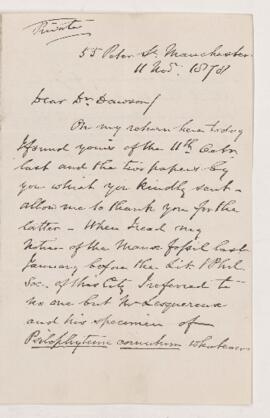 Private
55 Peter St. Manchester
11 Nov. 1878
Dear Dr. Dawson/
On my return here today
I found yours of the 11th Octr.
last and the two papers by
you which you kindly sent -
allow me to thank you for the
latter - When I read my
notice of the Manx fossil last
January before the Lit. & Phil.
Soc. of this City I referred to
no one but Mr Lesquereux
and his specimen of
Psilophytum cornutum whatever